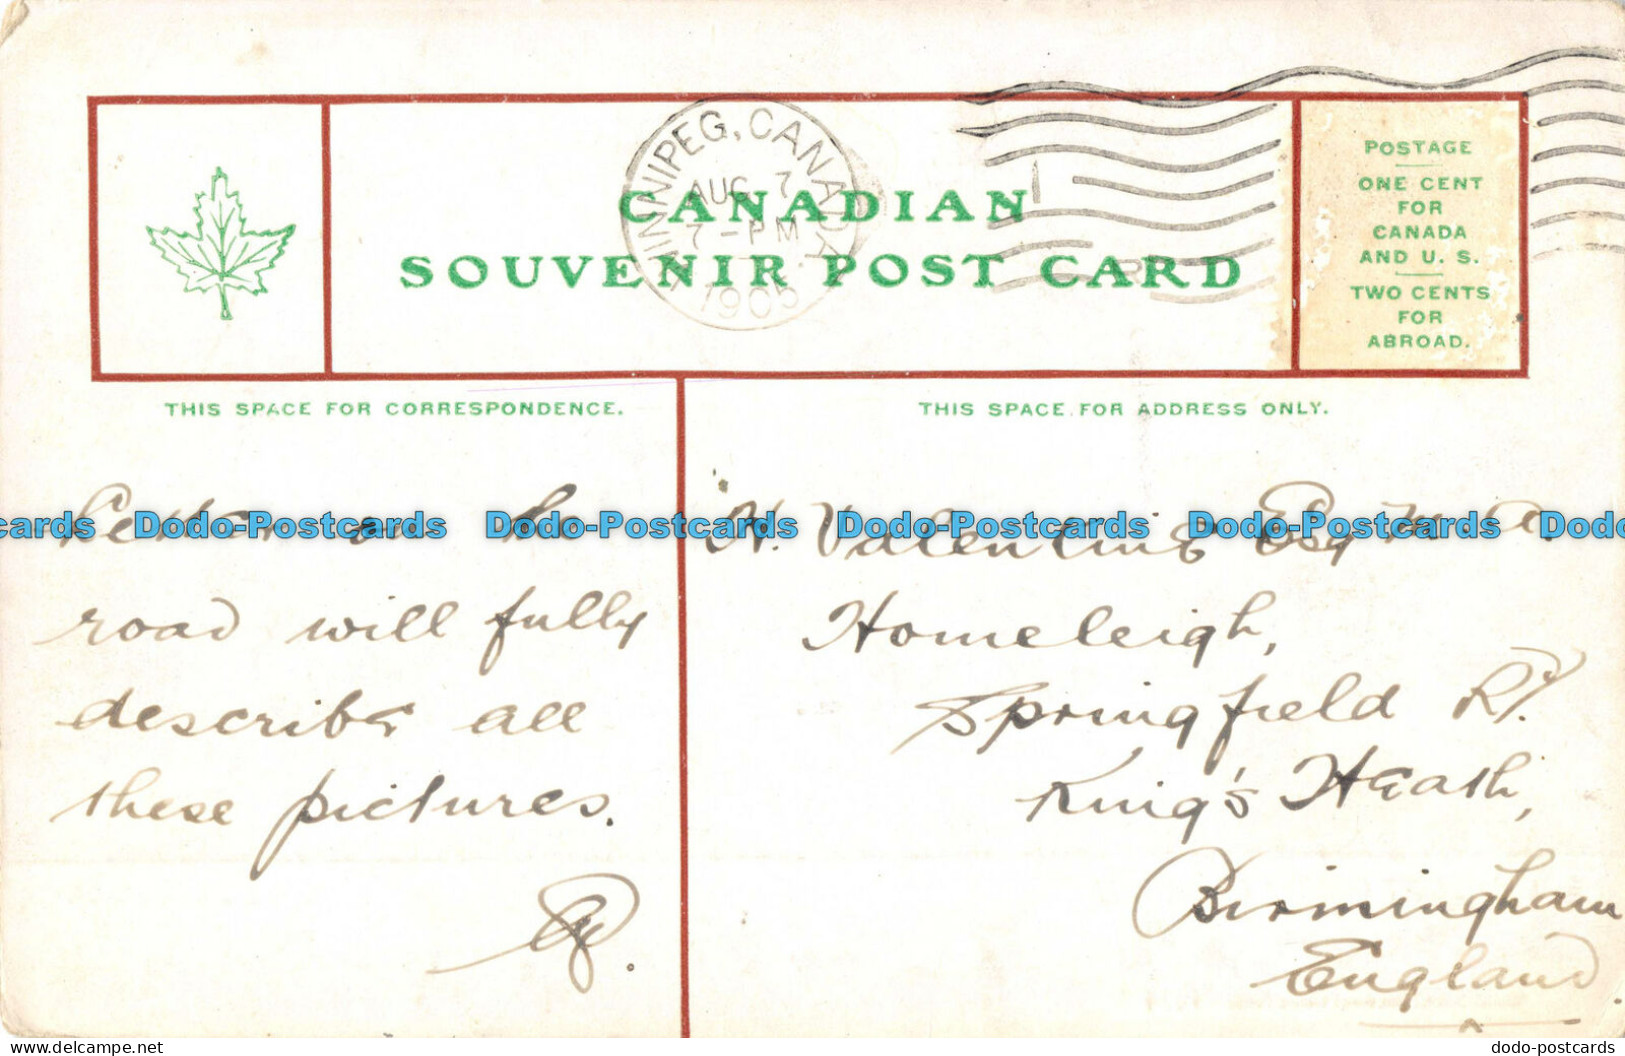 WINNIPEG, CANADA
AUG 7
7-PM
1905
CANADIAN
SOUVENIR POST CARD
POSTAGE
ONE CENT
FOR
CANADA
AND U. S.
TWO CENTS
FOR
ABROAD.
THIS SPACE FOR CORRESPONDENCE.
THIS SPACE FOR ADDRESS ONLY.
Letter on the
road will fully
describe all
these pictures.
H. Valentine Esq M. A.
Homeleigh,
Springfield Rd.
King's Heath,
Birmingham
England
Dodo-Postcards Dodo-Postcards Dodo-Postcards Dodo-Postcards Dodo-Postcards
delcampe.net
dodo-postcards